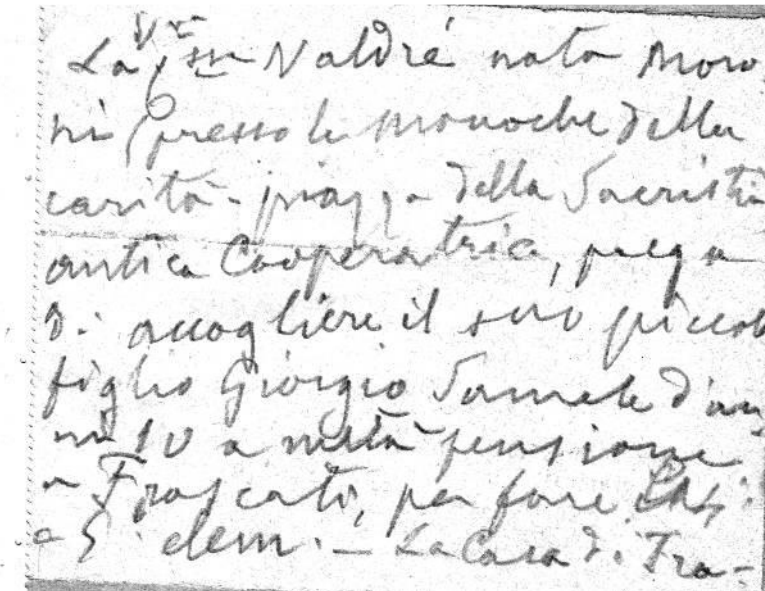 La Valdré nata Moro
ni (presso le Monache della
carità - piazza della Sacristia
antica Cooperatrice, prega
di accogliere il suo piccolo
figlio Giorgio d'an
ni 10 a metà pensione
a Frascati, per fare
a 5 elem. - La Casa di Fra-